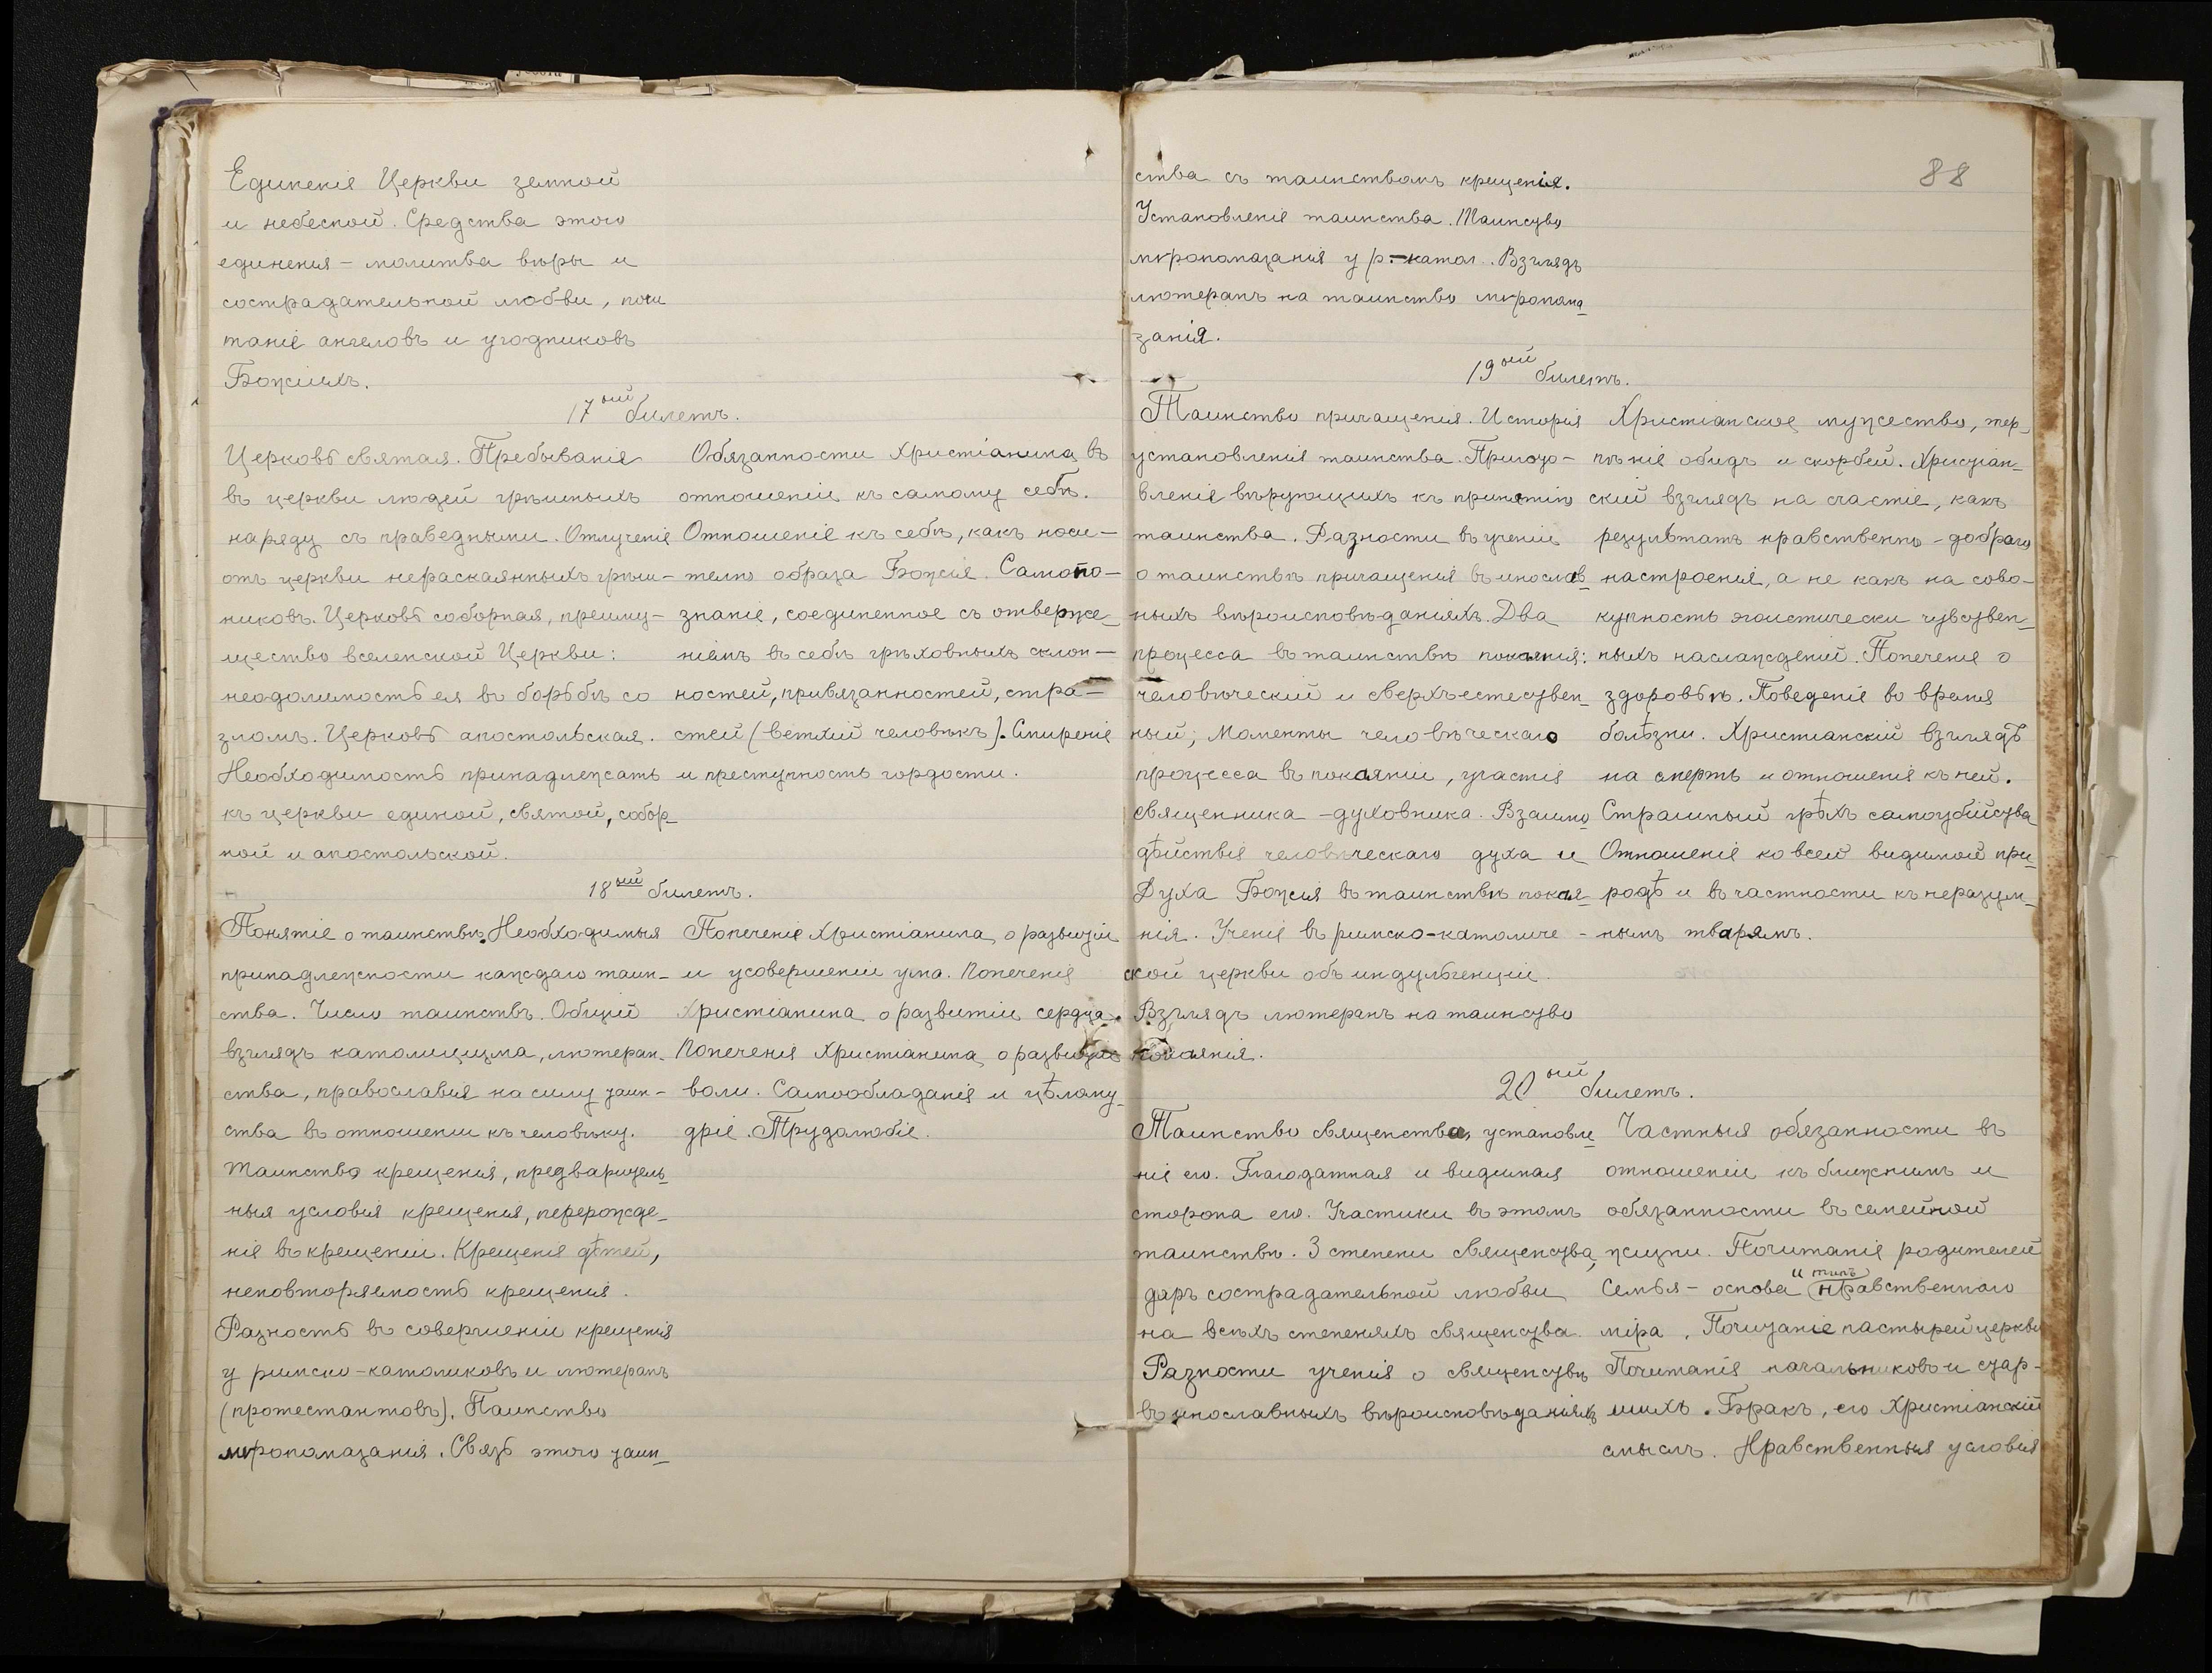 Единеніе Церкви земной
и небесной. Средства этого
единения – молитва вѣры и
сострадательной любви, почи
таніе ангеловъ и угодниковъ
Божіихъ.
17ый билетъ.
Церковь святая. Пребываніе
въ церкви людей грѣшныхъ
наряду съ праведными. Отлученіе
отъ церкви нераскаянныхъ грѣш-
никовъ. Церковь соборная, преиму-
щество вселенской Церкви:
неодолимость ея въ борьбѣ со
зломъ. Церковь апостольская.
Необходимость принадлежать
къ церкви единой, святой, собор-
ной и апостольской.
Обязанности Христіанина въ
отношеніи къ самому себѣ.
Отношеніе къ себѣ, какъ носи-
телю образа Божія. Самопо-
знаніе, соединенное съ отверже-
ніемъ въ себѣ грѣховныхъ склон-
ностей, привязанностей, стра-
стей (ветхій человѣкъ). Смиреніе
и преступность гордости.
18ый билетъ.
Понятіе о таинствѣ. Необходимыя
принадлежности каждаго таин-
ства. Число таинствъ. Общій
взглядъ католицизма, лютеран-
ства, православія на силу таин-
ства въ отношеніи къ человѣку.
Таинство крещенія, предваритель-
ныя условія крещенія, перерожде-
ніе въ крещеніи. Крещеніе дѣтей,
неповторяемость крещенія.
Разность въ совершеніи крещенія
у римско-католиковъ и лютеранъ
(протестантовъ). Таинство
мѵропомазанія. Связь этого таин-
Попеченіе Христіанина о развитіи
и усовершеніи ума. Попеченіе
Христіанина о развитіи сердца.
Попеченіе Христіанина о развитіи
воли. Самообладаніе и цѣлому-
дріе. Трудолюбіе.
88
ства съ таинствомъ крещенія.
Установленіе таинства. Таинство
мѵропомазанія у р.-катол. Взглядъ
лютеранъ на таинство мѵропома-
занія.
19ый билетъ.
Таинство причащенія. Исторія
установленія таинства. Пригото-
вленіе вѣрующихъ къ принятію
таинства. Разности въ ученіи
о таинствѣ причащенія въ инослав-
ныхъ вѣроисповѣданіяхъ. Два
процесса въ таинствѣ покаянія:
человѣческій и сверхъестествен-
ный; Моменты человѣческаго
процесса въ покаяніи, участіе
священника-духовника. Взаимо
дѣйствіе человѣческаго духа и
Духа Божія въ таинствѣ покая-
нія. Ученіе въ римско-католиче-
ской церкви объ индульгенціи.
Взглядъ лютеранъ на таинство
покаянія.
Христіанское мужество, тер-
пѣніе обидъ и скорбей. Христіан-
скій взглядъ на счастіе, какъ
результатъ нравственно-добраго
настроенія, а не какъ на сово-
купность эгоистически чувствен-
ныхъ наслажденій. Попеченіе о
здоровьѣ. Поведеніе во время
болѣзни. Христіанскій взглядъ
на смерть и отношеніе къ ней.
Страшный грѣхъ самоубійства
Отношеніе ко всей видимой при-
родѣ и въ частности къ неразум-
нымъ тварямъ.
20ый билетъ.
Таинство священства, установле
ніе его. Благодатная и видимая
сторона его. Участники въ этомъ
таинствѣ. 3 степени священства,
даръ сострадательной любви
на всѣхъ степеняхъ священства.
Разности ученія о священствѣ
въ инославныхъ вѣроисповѣданіяхъ
Частныя обязанности въ
отношеніи къ ближнимъ и
обязанности въ семейной
жизни. Почитаніе родителей
Семья – основа и типъ нравственнаго
міра. Почитаніе пастырей церкви
Почитаніе начальниковъ и стар-
шихъ. Бракъ, его Христіанскій
смыслъ. Нравственныя условія